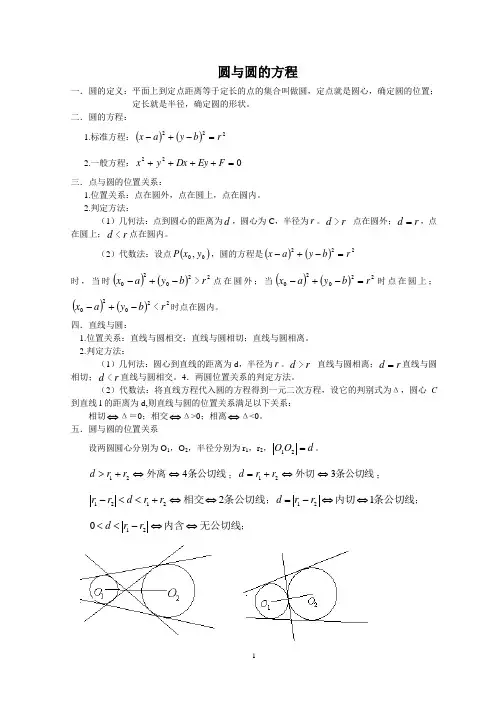 圆与圆的方程
一．圆的定义：平面上到定点距离等于定长的点的集合叫做圆，定点就是圆心，确定圆的位置；
定长就是半径，确定圆的形状。
二．圆的方程：
1.标准方程：(x－a)²＋(y－b)²＝r²
2.一般方程：x²＋y²＋Dx＋Ey＋F＝0
三．点与圆的位置关系：
1.位置关系：点在圆外，点在圆上，点在圆内。
2.判定方法：
（1）几何法：点到圆心的距离为d，圆心为 C，半径为r。d＞r 点在圆外；d＝r，点
在圆上；d＜r点在圆内。
（2）代数法：设点P(x₀, y₀)，圆的方程是(x－a)²＋(y－b)²＝r²
时，当时(x₀－a)²＋(y₀－b)²＞r²点在圆外；当(x₀－a)²＋(y₀－b)²＝r²时点在圆上；
(x₀－a)²＋(y₀－b)²＜r²时点在圆内。
四．直线与圆：
1.位置关系：直线与圆相交；直线与圆相切；直线与圆相离。
2.判定方法：
（1）几何法：圆心到直线的距离为 d，半径为r。d＞r 直线与圆相离；d＝r直线与圆
相切；d＜r直线与圆相交。4．两圆位置关系的判定方法。
（2）代数法：将直线方程代入圆的方程得到一元二次方程，设它的判别式为Δ，圆心 C
到直线 l 的距离为 d,则直线与圆的位置关系满足以下关系：
相切⇔Δ＝0；相交⇔Δ>0；相离⇔Δ<0。
五．圆与圆的位置关系
设两圆圆心分别为 O₁，O₂，半径分别为 r₁，r₂，|O₁O₂|＝d。
d＞r₁＋r₂⇔外离⇔4条公切线；d＝r₁＋r₂⇔外切⇔3条公切线；
|r₁－r₂|＜d＜r₁＋r₂⇔相交⇔2条公切线；d＝|r₁－r₂|⇔内切⇔1条公切线；
0＜d＜|r₁－r₂|⇔内含⇔无公切线；
O₁ O₂ O₁ O₂
1